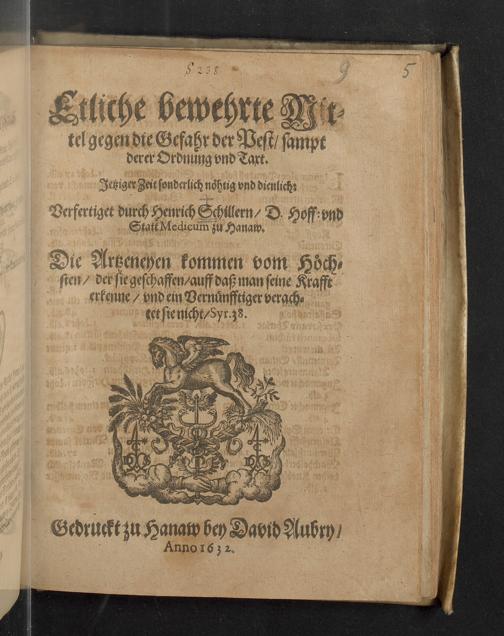 § 238
9
5
Etliche bewehrte Mit-
tel gegen die Gefahr der Pest/ sampt
derer Ordnung vnd Taxt.
Jetziger Zeit sonderlich nöhtig vnd dienlich:
Verfertiget durch Henrich Schillern/ D. Hoff: vnd
Statt Medicum zu Hanaw.
Die Artzeneyen kommen vom Höch-
sten/ der sie geschaffen/ auff daß man seine Krafft
erkenne/ vnd ein Vernünfftiger verach-
tet sie nicht/ Syr. 38.
Gedruckt zu Hanaw bey David Aubry/
Anno 1632.